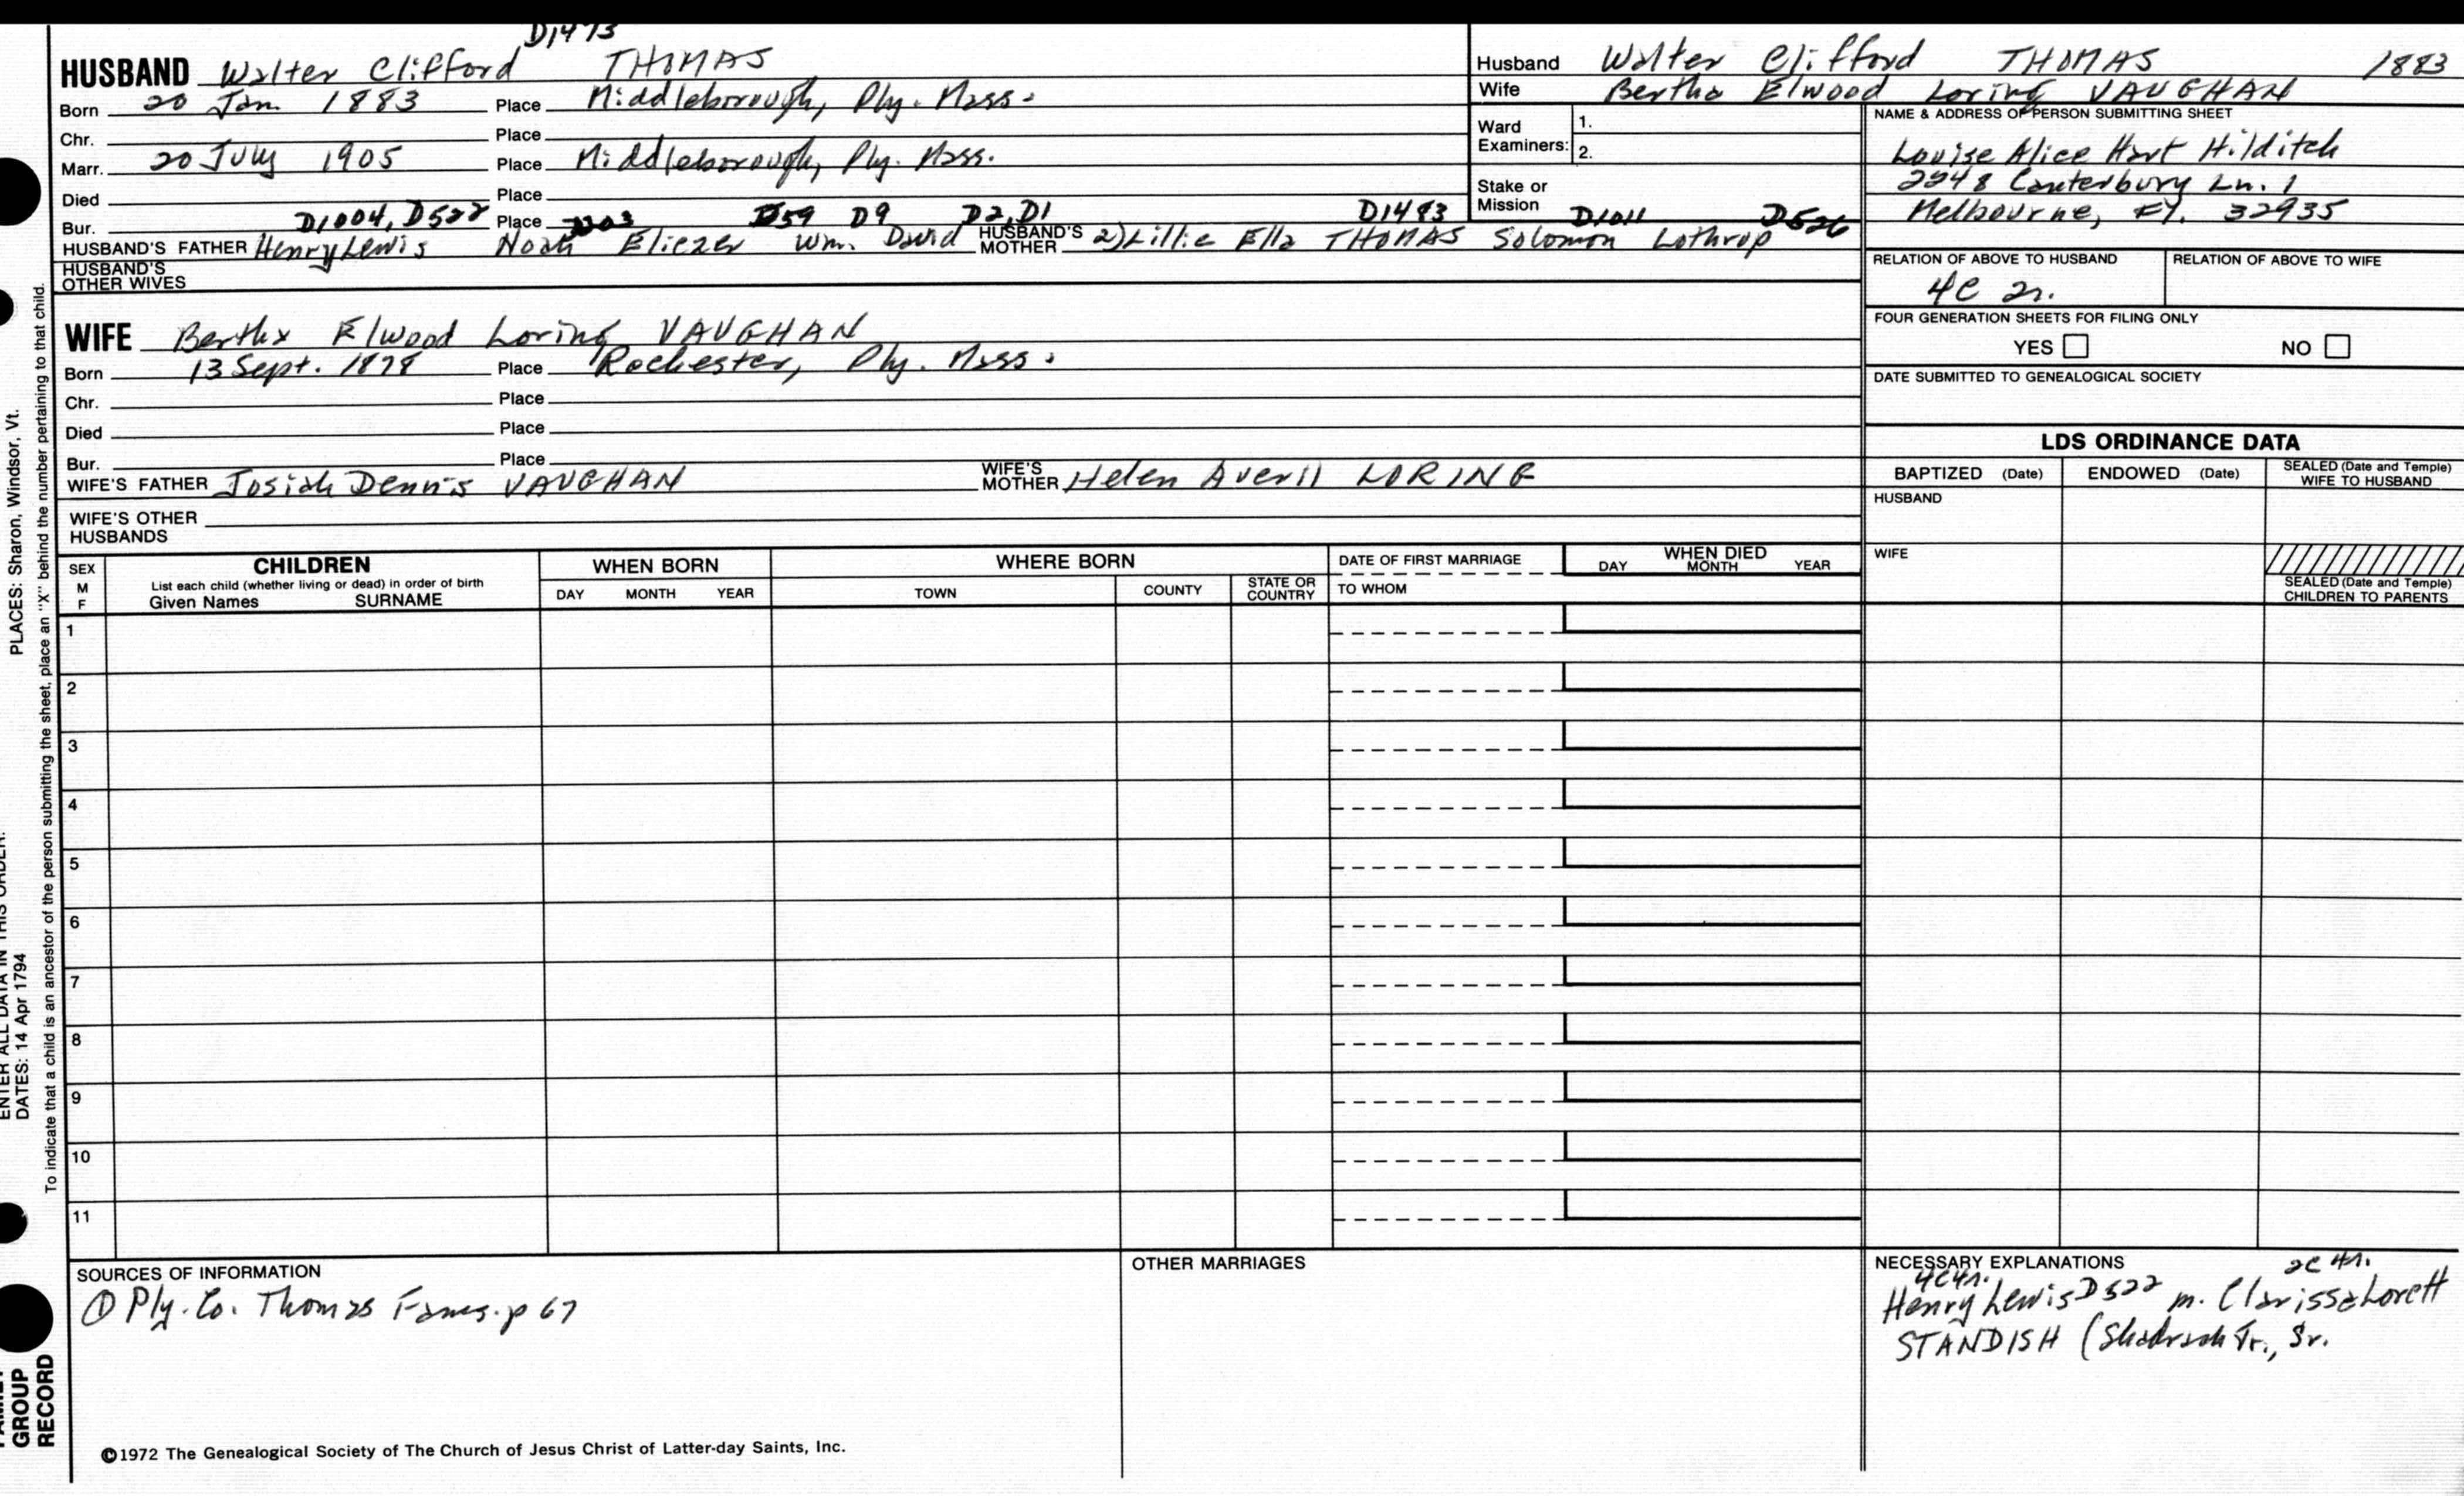 D1473
HUSBAND Walter Clifford THOMAS
Born 20 Jan 1883 Place Middleborough, Ply. Mass.
Chr. Place
Marr. 20 July 1905 Place Middleborough, Ply. Mass.
Died Place
Bur. D1004, D522 Place D59 D9 D2, D1 D1483 D1011 D526
HUSBAND'S FATHER Henry Lewis Noah Eliezer Wm. David HUSBAND'S MOTHER 2) Lillie Ella THOMAS Solomon Lothrop
HUSBAND'S OTHER WIVES
Husband Walter Clifford THOMAS 1883
Wife Bertha Elwood Loring VAUGHAN
Ward Examiners: 1.
2.
Stake or Mission
NAME & ADDRESS OF PERSON SUBMITTING SHEET
Louise Alice Hart Hilditch
2248 Canterbury Ln. 1
Melbourne, Fl. 32935
RELATION OF ABOVE TO HUSBAND RELATION OF ABOVE TO WIFE
4C 2r.
FOUR GENERATION SHEETS FOR FILING ONLY
YES NO
DATE SUBMITTED TO GENEALOGICAL SOCIETY
WIFE Bertha Elwood Loring VAUGHAN
Born 13 Sept. 1878 Place Rochester, Ply. Mass.
Chr. Place
Died Place
Bur. Place
WIFE'S FATHER Josiah Dennis VAUGHAN WIFE'S MOTHER Helen Averil LORING
WIFE'S OTHER HUSBANDS
LDS ORDINANCE DATA
BAPTIZED (Date) ENDOWED (Date) SEALED (Date and Temple) WIFE TO HUSBAND
HUSBAND
WIFE
SEALED (Date and Temple) CHILDREN TO PARENTS
SEX M F
CHILDREN
List each child (whether living or dead) in order of birth
Given Names SURNAME
WHEN BORN
DAY MONTH YEAR
WHERE BORN
TOWN COUNTY STATE OR COUNTRY
DATE OF FIRST MARRIAGE
TO WHOM
WHEN DIED
DAY MONTH YEAR
1
2
3
4
5
6
7
8
9
10
11
SOURCES OF INFORMATION
① Ply. Co. Thomas Fams. p 67
OTHER MARRIAGES
NECESSARY EXPLANATIONS
4C4r. 2C 4r.
Henry Lewis D522 m. Clarissa Lorett
STANDISH (Shadrach Jr., Sr.
©1972 The Genealogical Society of The Church of Jesus Christ of Latter-day Saints, Inc.
PLACES: Sharon, Windsor, Vt.
ENTER ALL DATA IN THIS ORDER:
DATES: 14 Apr 1794
To indicate that a child is an ancestor of the person submitting the sheet, place an "X" behind the number pertaining to that child.
FAMILY GROUP RECORD